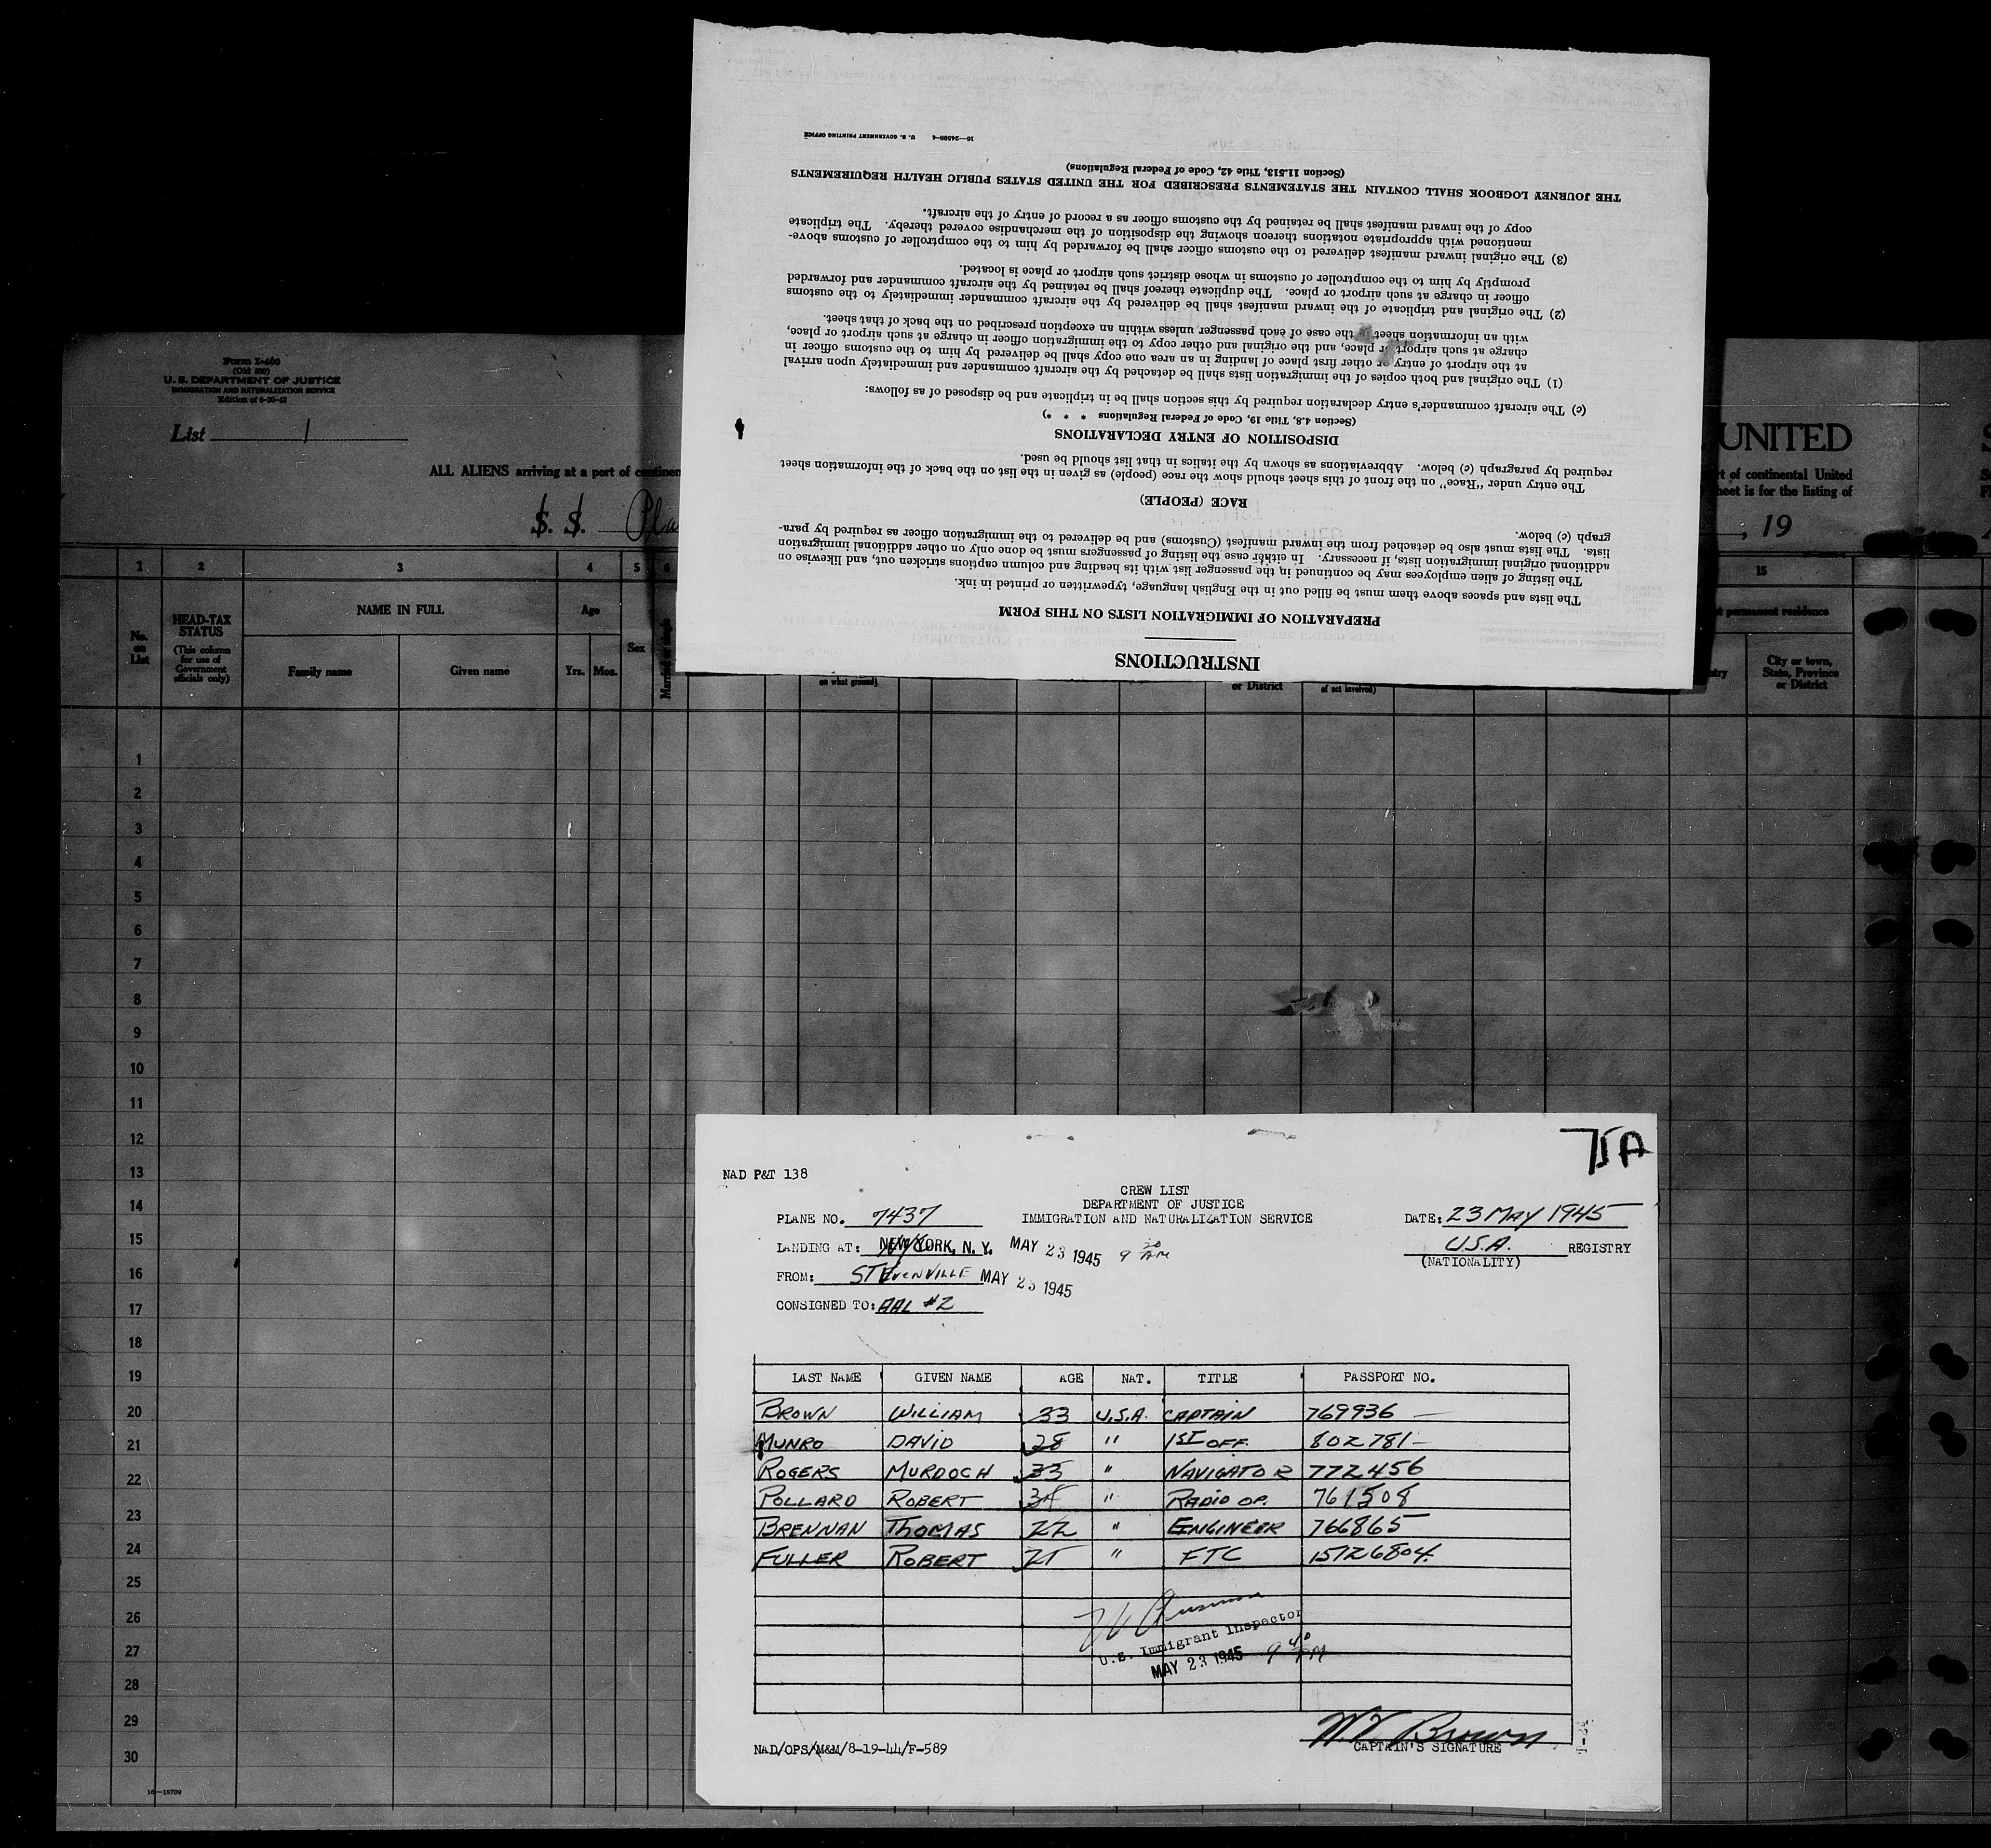 Form I-460
(Old 500)
U. S. DEPARTMENT OF JUSTICE
IMMIGRATION AND NATURALIZATION SERVICE
Edition of 6-30-42
List 1
ALL ALIENS arriving at a port of continen
S. S. Pla
1 2 3 4 5 6
No. on List
HEAD-TAX STATUS
(This column for use of Government officials only)
NAME IN FULL
Family name Given name
Age
Yrs. Mos.
Sex
on what ground)
or District
of act involved)
UNITED
rt of continental United
heet is for the listing of
, 19
15
permanent residence
ntry
City or town, State, Province or District
1
2
3
4
5
6
7
8
9
10
11
12
13
14
15
16
17
18
19
20
21
22
23
24
25
26
27
28
29
30
16—18709
INSTRUCTIONS
PREPARATION OF IMMIGRATION LISTS ON THIS FORM
The lists and spaces above them must be filled out in the English language, typewritten or printed in ink.
The listing of alien employees may be continued in the passenger list with its heading and column captions stricken out, and likewise on
additional original immigration lists, if necessary. In either case the listing of passengers must be done only on other additional immigration
lists. The lists must also be detached from the inward manifest (Customs) and be delivered to the immigration officer as required by para-
graph (c) below.
RACE (PEOPLE)
The entry under "Race" on the front of this sheet should show the race (people) as given in the list on the back of the information sheet
required by paragraph (c) below. Abbreviations as shown by the italics in that list should be used.
DISPOSITION OF ENTRY DECLARATIONS
(Section 4.8, Title 19, Code of Federal Regulations * * *)
(c) The aircraft commander's entry declaration required by this section shall be in triplicate and be disposed of as follows:
(1) The original and both copies of the immigration lists shall be detached by the aircraft commander and immediately upon arrival
at the airport of entry or other first place of landing in an area one copy shall be delivered by him to the customs officer in
charge at such airport or place, and the original and other copy to the immigration officer in charge at such airport or place,
with an information sheet in the case of each passenger unless within an exception prescribed on the back of that sheet.
(2) The original and triplicate of the inward manifest shall be delivered by the aircraft commander immediately to the customs
officer in charge at such airport or place. The duplicate thereof shall be retained by the aircraft commander and forwarded
promptly by him to the comptroller of customs in whose district such airport or place is located.
(3) The original inward manifest delivered to the customs officer shall be forwarded by him to the comptroller of customs above-
mentioned with appropriate notations thereon showing the disposition of the merchandise covered thereby. The triplicate
copy of the inward manifest shall be retained by the customs officer as a record of entry of the aircraft.
THE JOURNEY LOGBOOK SHALL CONTAIN THE STATEMENTS PRESCRIBED FOR THE UNITED STATES PUBLIC HEALTH REQUIREMENTS
(Section 11.513, Title 42, Code of Federal Regulations)
16—24598-4 U. S. GOVERNMENT PRINTING OFFICE
75A
NAD P&T 138
CREW LIST
DEPARTMENT OF JUSTICE
IMMIGRATION AND NATURALIZATION SERVICE
PLANE NO. 7437
DATE: 23 MAY 1945
LANDING AT: NEW YORK, N. Y. MAY 23 1945 9 20 AM
U.S.A. REGISTRY
(NATIONALITY)
FROM: STEVENVILLE MAY 23 1945
CONSIGNED TO: AAL #2
LAST NAME GIVEN NAME AGE NAT. TITLE PASSPORT NO.
BROWN WILLIAM 33 U.S.A. CAPTAIN 769936 —
MUNRO DAVID 28 " 1ST OFF. 802781 —
ROGERS MURDOCH 33 " NAVIGATOR 772456
POLLARD ROBERT " RADIO OP. 761508
BRENNAN THOMAS 22 " ENGINEER 766865
FULLER ROBERT " FTC 15126804
U.S. Immigrant Inspector
MAY 23 1945 9 40
W V Brown
CAPTAIN'S SIGNATURE
NAD/OPS/M&M/8-19-44/F-589